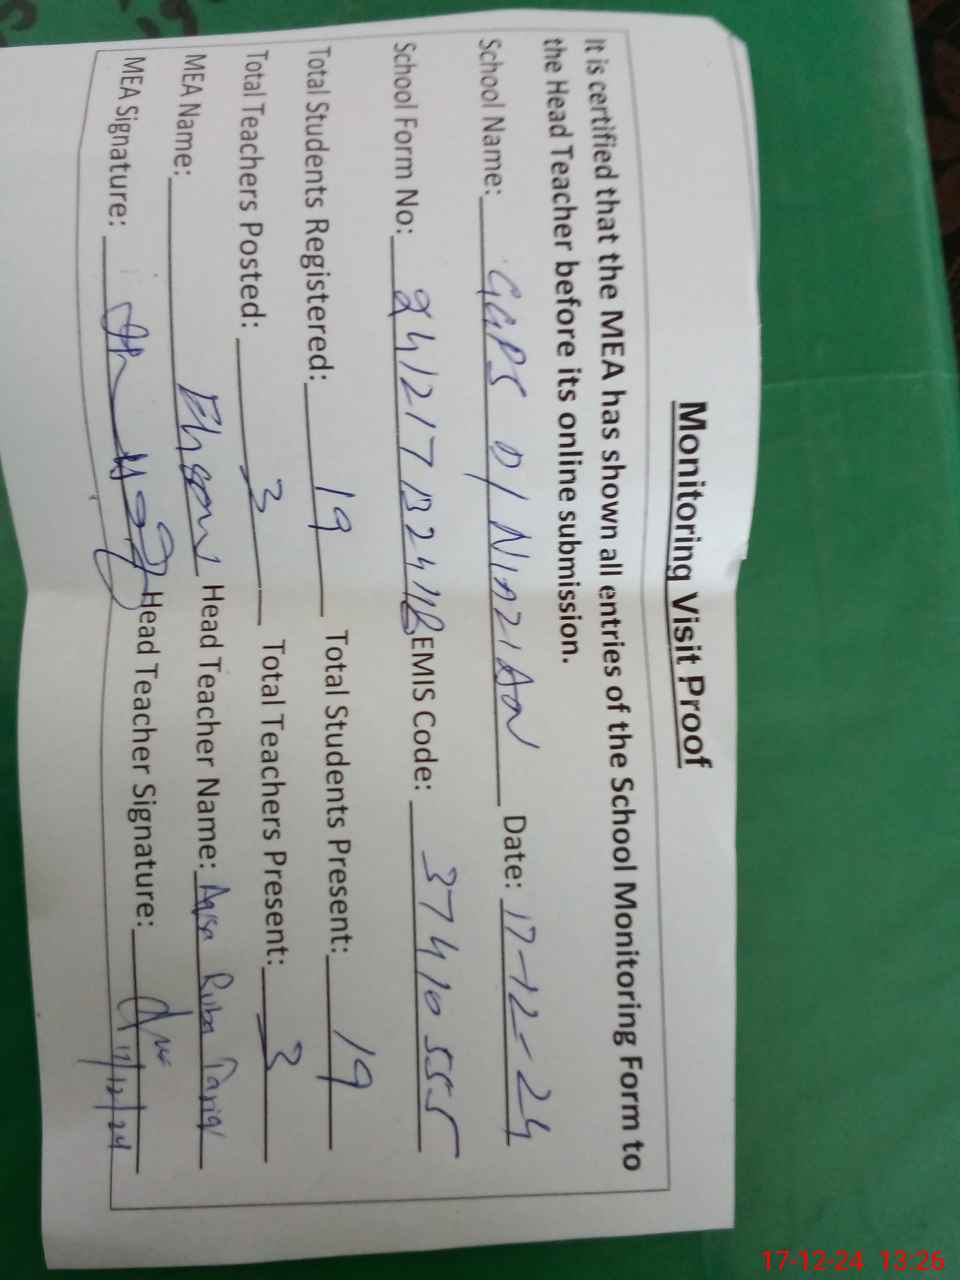 Monitoring Visit Proof
It is certified that the MEA has shown all entries of the School Monitoring Form to
the Head Teacher before its online submission.
School Name: GGPS D/ NIAZIAN Date: 17-12-24
School Form No: EMIS Code: 37410555
Total Students Registered: 19 Total Students Present: 19
Total Teachers Posted: 3 Total Teachers Present: 3
MEA Name: Ehsan Head Teacher Name: Rubba Tariq
MEA Signature: Head Teacher Signature: 17/12/24
17-12-24 13:26